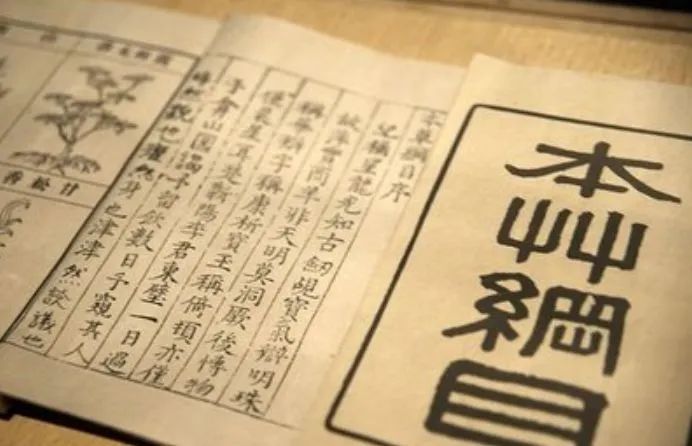 本艸綱目
本草綱目序
稱望龍光知古劔覘寶氣辯明珠
故萍實商羊非天明莫洞厥後博物
稱華辯字稱康析寶玉稱倚頓亦僅
僅晨星耳楚蘄陽李君東璧一日過
予弇山園謁予留飲數日予窺其人
睟然貌也癯然身也津津然談議也
甘松香